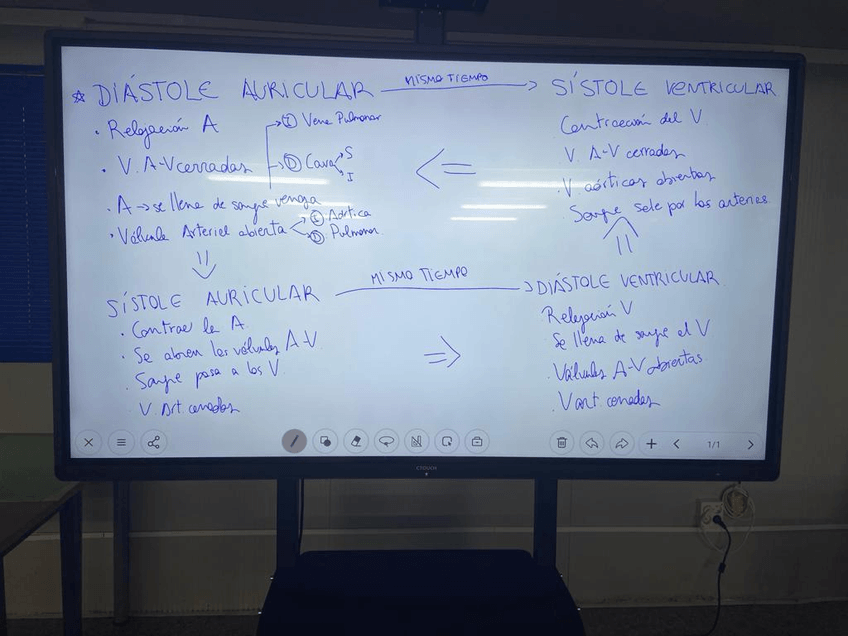 ☆ DIÁSTOLE AURICULAR
MISMO TIEMPO
SÍSTOLE VENTRICULAR
· Relajación A
· V. A-V cerradas
· A → se llena de sangre venosa
· Válvula Arterial abierta
I Vena Pulmonar
D Cava
S
I
I Aórtica
D Pulmonar
Contracción del V
V. A-V cerradas
· V. aórticas abiertas
· Sangre sale por las arterias
SÍSTOLE AURICULAR
MISMO TIEMPO
DIÁSTOLE VENTRICULAR
· Contrae la A
· Se abren las válvulas A-V
· Sangre pasa a los V
· V. Art. cerradas
Relajación V
· Se llena de sangre el V
· Válvulas A-V abiertas
· V art. cerradas
1/1
CTOUCH